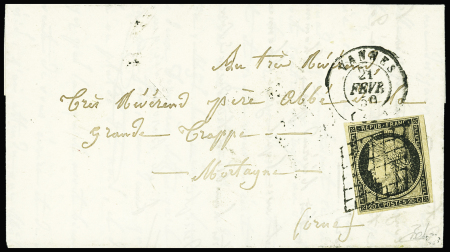 Au très Révé
Très Révérend père Abbé
Grande Trappe
Mortagne
(orne)
VANNES
21
FEVR
50
REPUB. FRANC.
20 c POSTES 20 c